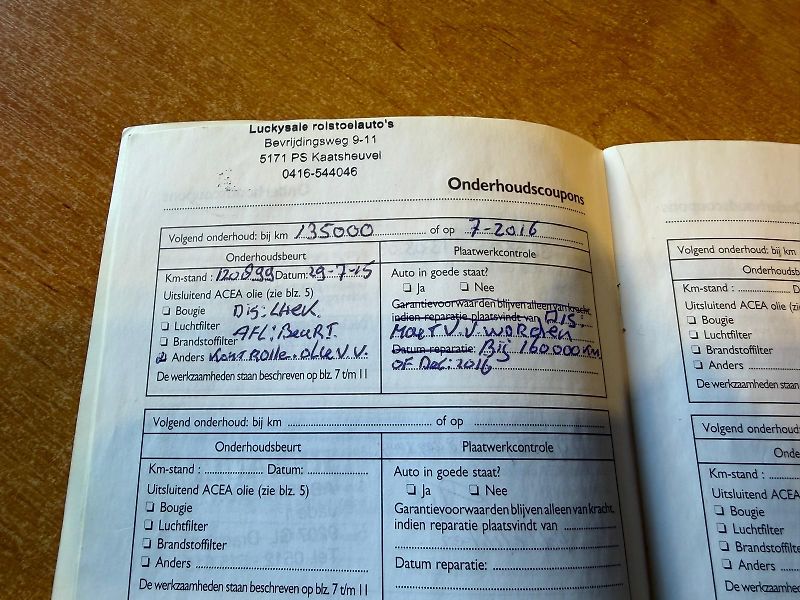 Luckysale rolstoelauto's
Bevrijdingsweg 9-11
5171 PS Kaatsheuvel
0416-544046
Onderhoudscoupons
Volgend onderhoud: bij km 135000 of op 7-2016
Onderhoudsbeurt
Km-stand: 120899 Datum: 29-7-15
Uitsluitend ACEA olie (zie blz. 5)
Bougie
Luchtfilter
AFL: BeURT.
Brandstoffilter
Anders KONTROLLE. OLIE V.V.
De werkzaamheden staan beschreven op blz. 7 t/m 11
Plaatwerkcontrole
Auto in goede staat?
Ja Nee
Garantievoorwaarden blijven alleen van kracht,
indien reparatie plaatsvindt van DIS:
MOET V.V WORDEN
Datum reparatie: Bij 160000 km
OF Dec: 2016
Volgend onderhoud: bij km of op
Onderhoudsbeurt
Km-stand : Datum:
Uitsluitend ACEA olie (zie blz. 5)
Bougie
Luchtfilter
Brandstoffilter
Anders
De werkzaamheden staan beschreven op blz. 7 t/m 11
Plaatwerkcontrole
Auto in goede staat?
Ja Nee
Garantievoorwaarden blijven alleen van kracht,
indien reparatie plaatsvindt van
Datum reparatie:
Volgend onderhoud: bij km
Onderhoudsb
Km-stand : D
Uitsluitend ACEA olie (zie blz.
Bougie
Luchtfilter
Brandstoffilter
Anders
De werkzaamheden staan besc
Volgend onderhoud: bij km
Onde
Km-stand :
Uitsluitend ACEA o
Bougie
Luchtfilter
Brandstoffilte
Anders
De werkzaamheden